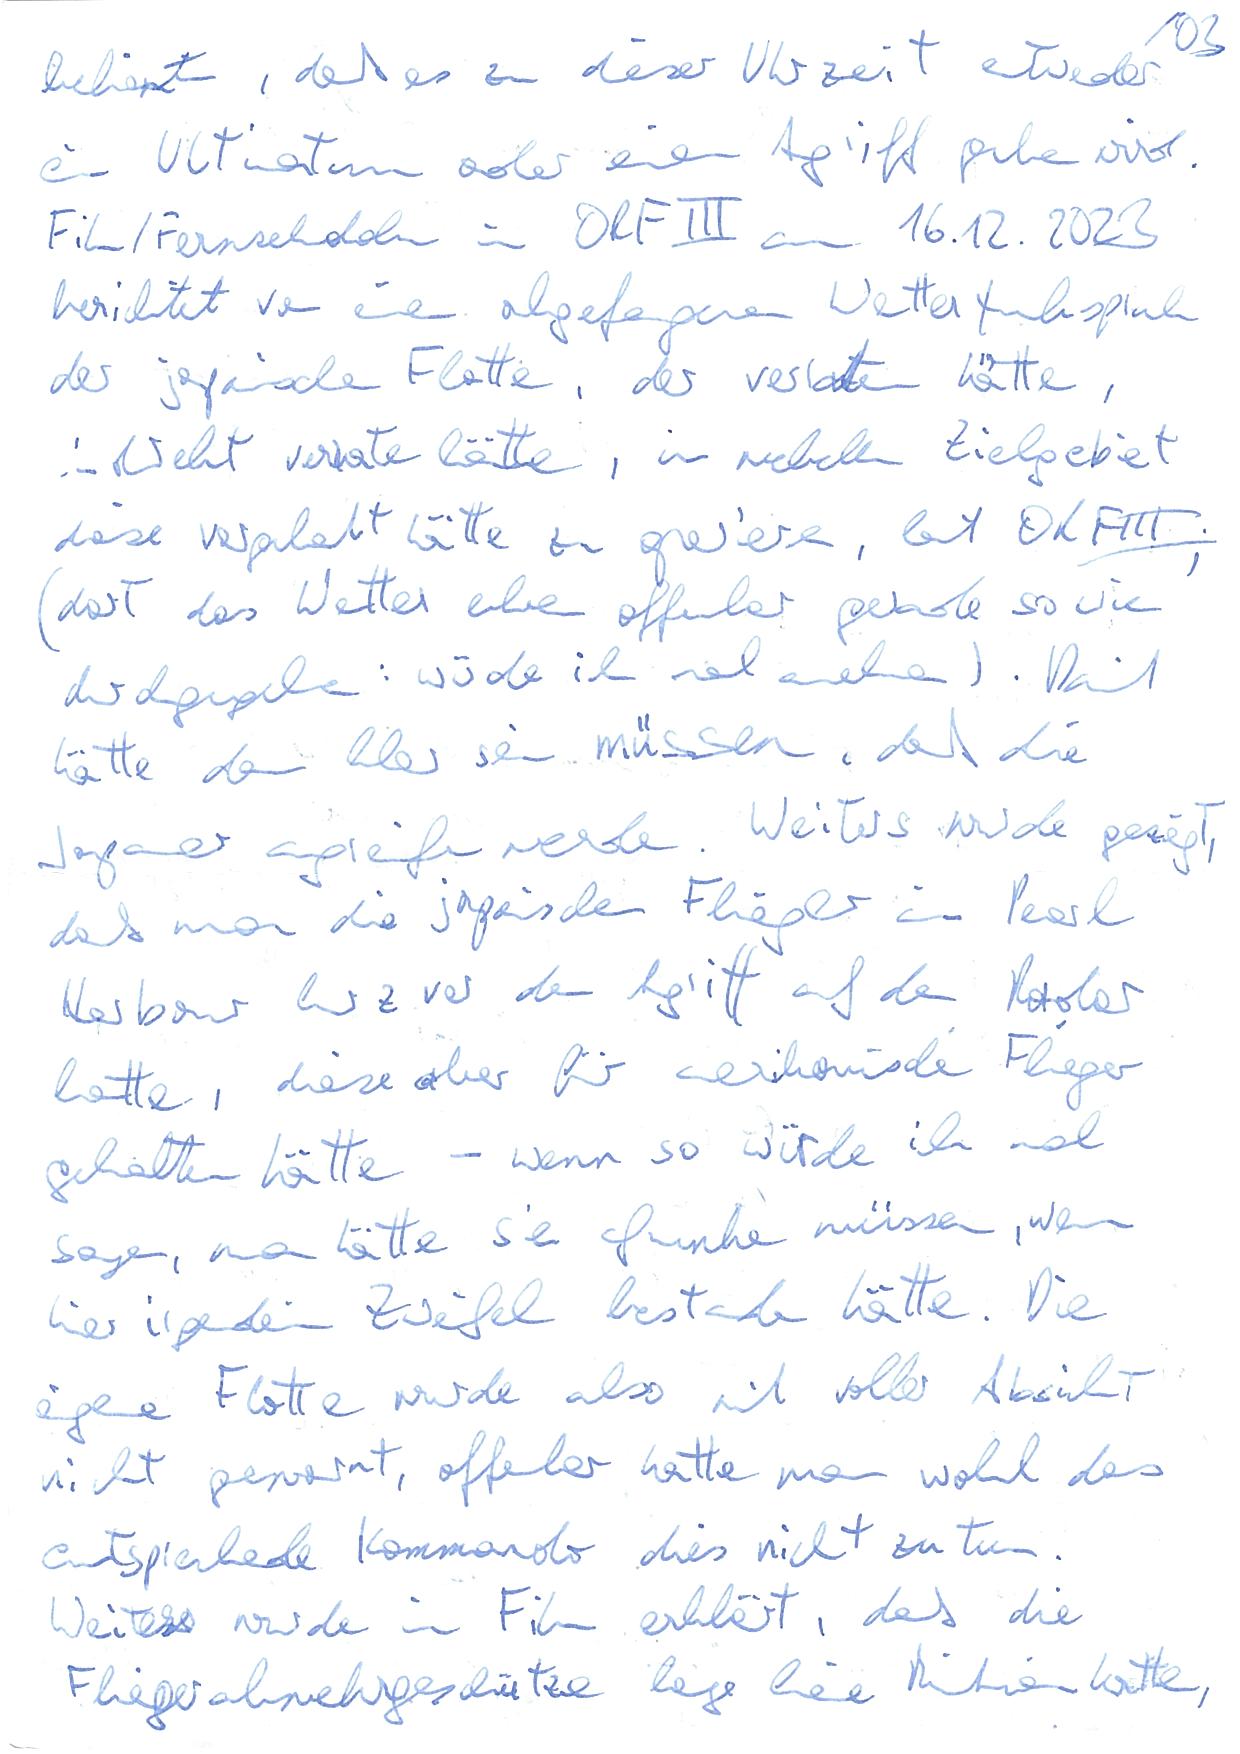 103
bekannt, daß es zu dieser Uhrzeit etweder
ein Ultimatum oder einen Agriff geben wird.
Film/Fernsehdoku in ORF III am 16.12.2023
berichtet von einem abgefangenen Wetterfunkspruch
der japanischen Flotte, der verraten hätte,
indirekt verraten hätte, in welchem Zielgebiet
diese vorgehabt hätte zu operieren, laut ORF III;
(dort das Wetter eben offenbar gerade so wie
durchgegeben: würde ich mal annehmen). Damit
hätte dann klar sein müssen, daß die
Japaner angreifen werden. Weiters wurde gezeigt,
daß man die japanischen Flieger in Pearl
Harbour kurz vor dem Agriff auf dem Radar
hatte, diese aber für amerikanische Flieger
gehalten hätte – wenn so würde ich mal
sagen, man hätte sie anfunken müssen, wenn
hier irgendein Zweifel bestanden hätte. Die
eigene Flotte wurde also mit voller Absicht
nicht gewarnt, offenbar hatte man wohl das
entsprechende Kommando dies nicht zu tun.
Weiters wurde im Film erklärt, daß die
Fliegerabwehrgeschütze lange keine Munition hatten,